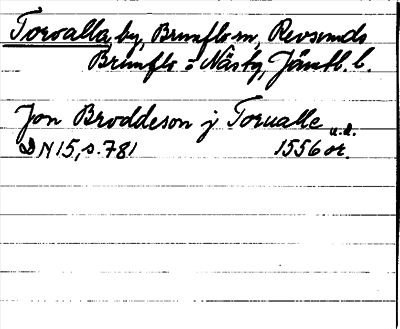 Torvalla, by, Brunflo sn, Revsunds
Brunflo o Näsby, Jämtl. l.
Jon Broddeson j Torualle u.d.
DN 15, s. 781 1556 or.